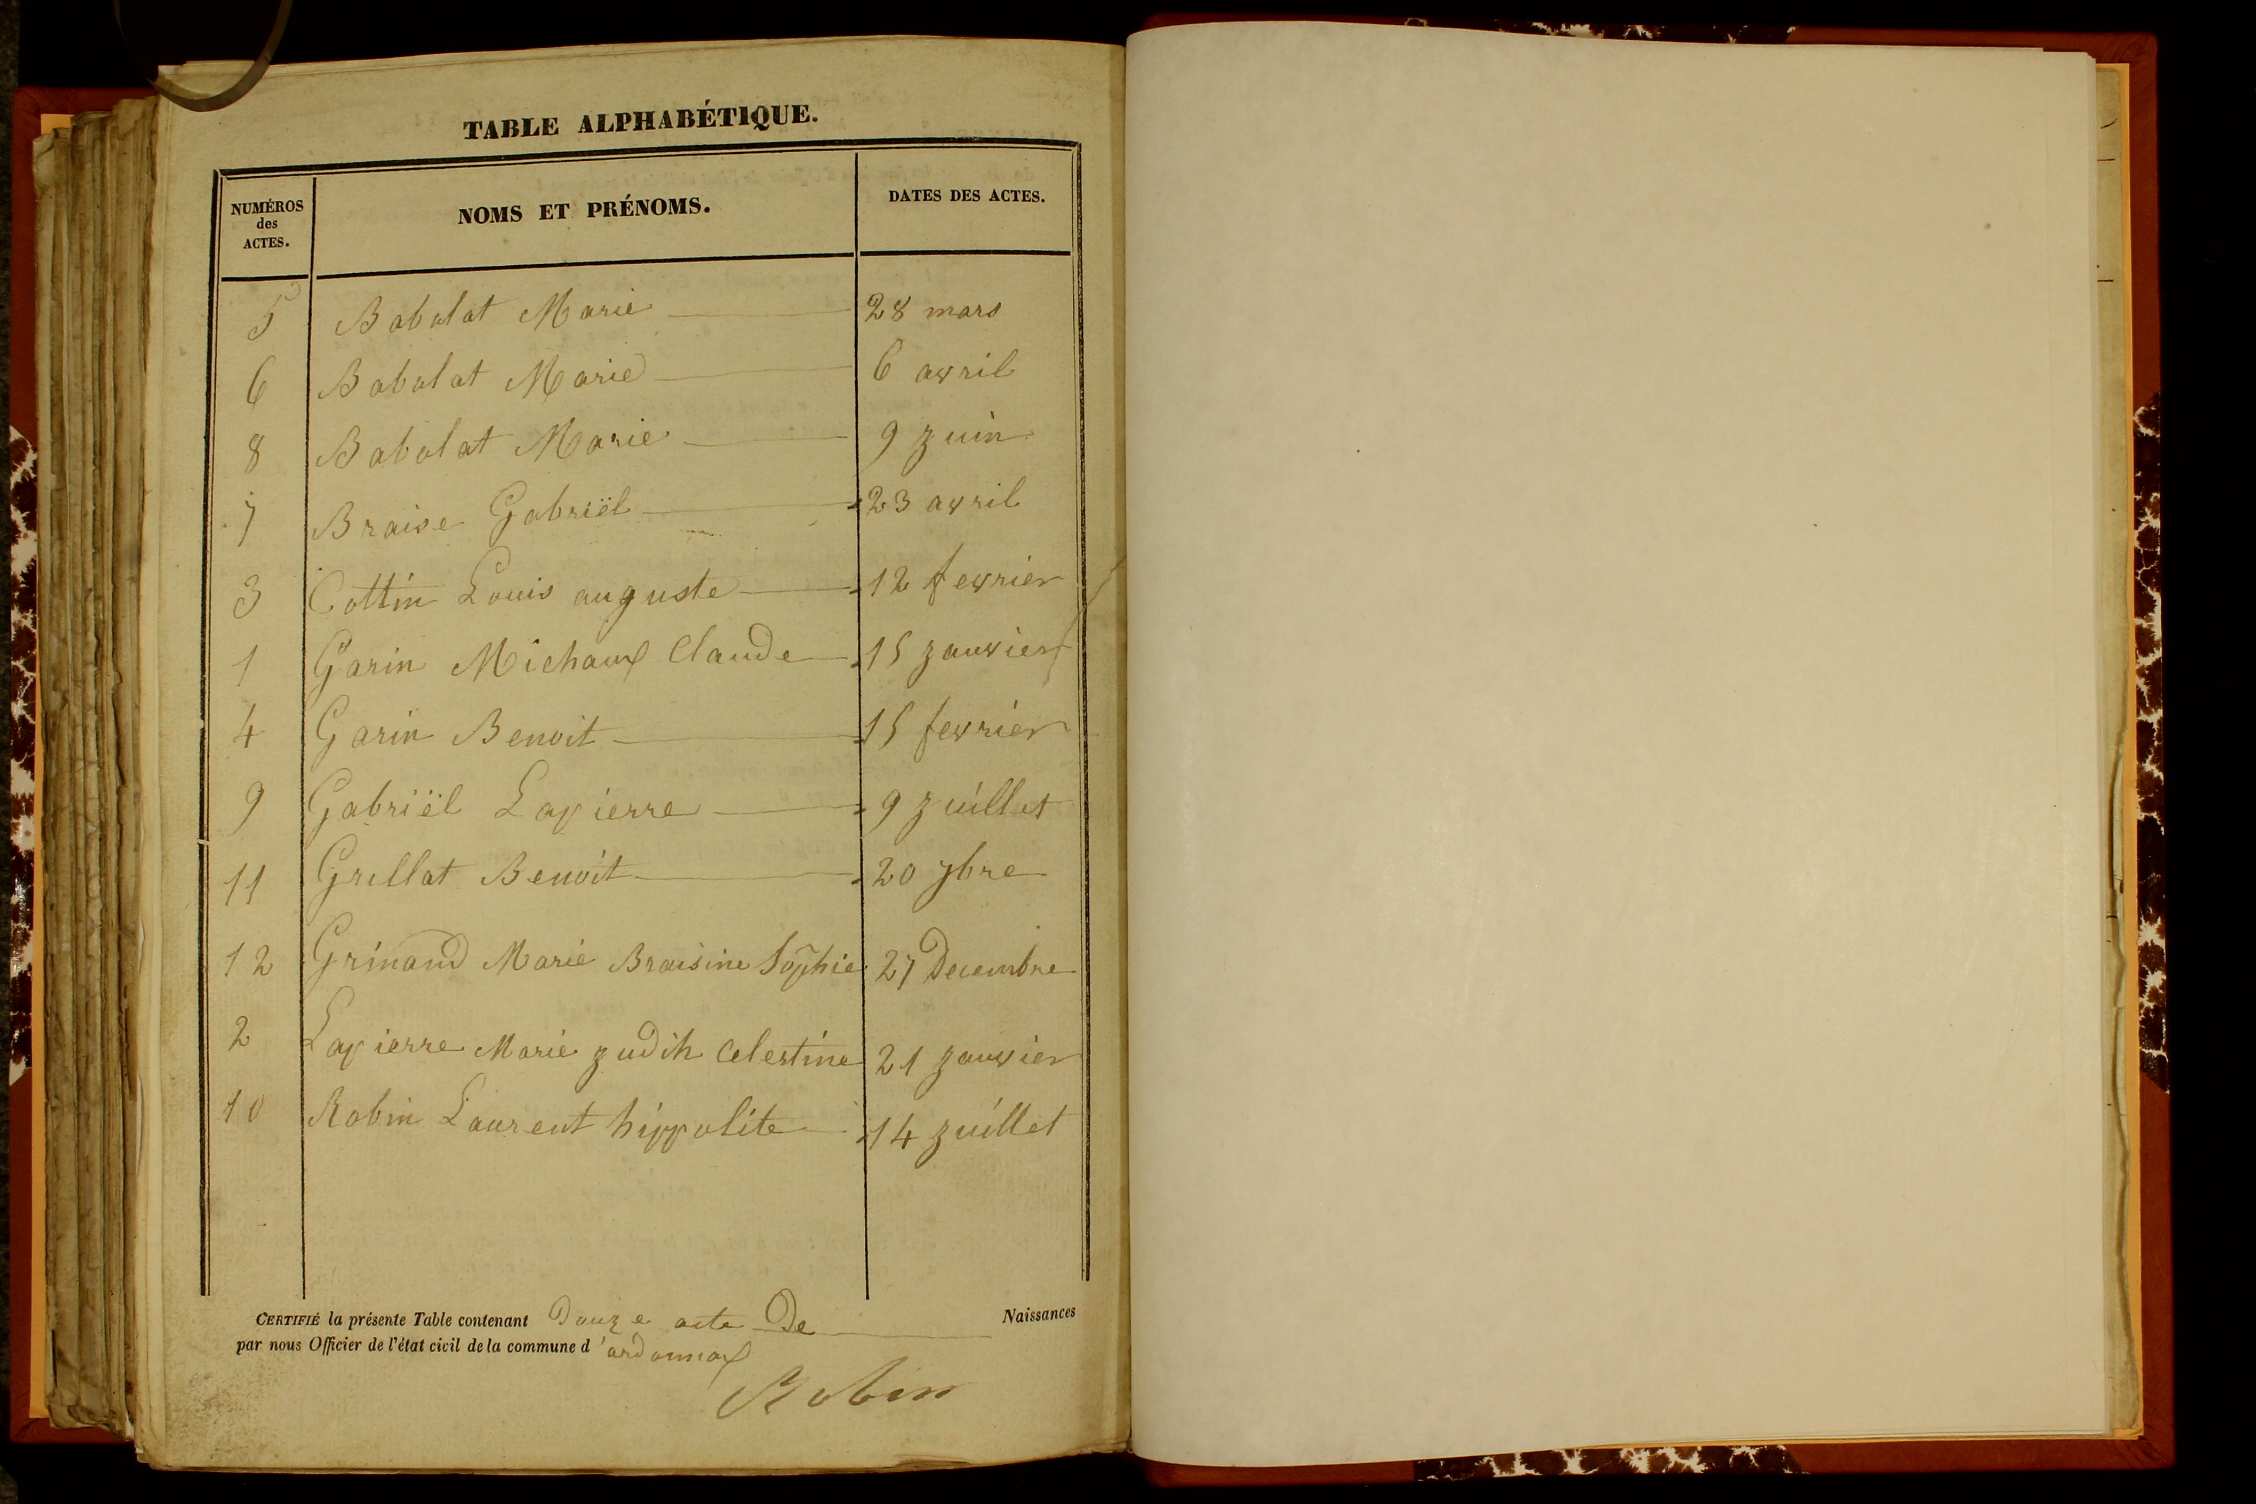 TABLE ALPHABÉTIQUE.
NUMÉROS des ACTES. NOMS ET PRÉNOMS. DATES DES ACTES.
5 Babolat Marie 28 mars
6 Babolat Marie 6 avril
8 Babolat Marie 9 zuin
7 Braise Gabriël 23 avril
3 Cottin Louis auguste 12 fevrier
1 Garin Michaux Claude 15 zanvier
4 Garin Benoit 15 fevrier
9 Gabriël Lapierre 9 zuillet
11 Grillat Benoit 20 7bre
12 Grinand Marie Braisine Sophie 27 Decembre
2 Lapierre Marie zudih Celestine 21 zanvier
10 Robin Laurent hippolite 14 zuillet
CERTIFIÉ la présente Table contenant Douze acte De Naissances
par nous Officier de l'état civil de la commune d'ordonnax
Robin